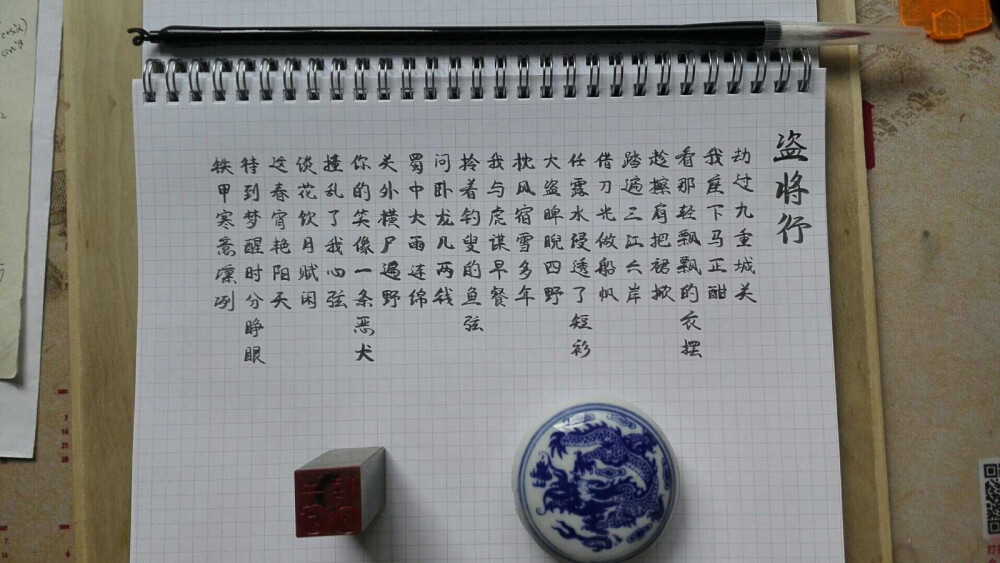 盗将行
劫过九重城关
我座下马正酣
看那轻飘飘的衣摆
趁擦肩把裙掀
踏遍三江六岸
借刀光做船帆
任露水浸透了短衫
大盗睥睨四野
枕风宿雪多年
我与虎谋早餐
拎着钓叟的鱼弦
问卧龙几两钱
蜀中大雨连绵
关外横尸遍野
你的笑像一条恶犬
撞乱了我心弦
谈花饮月赋闲
这春宵艳阳天
待到梦醒时分睁眼
铁甲寒意凛冽